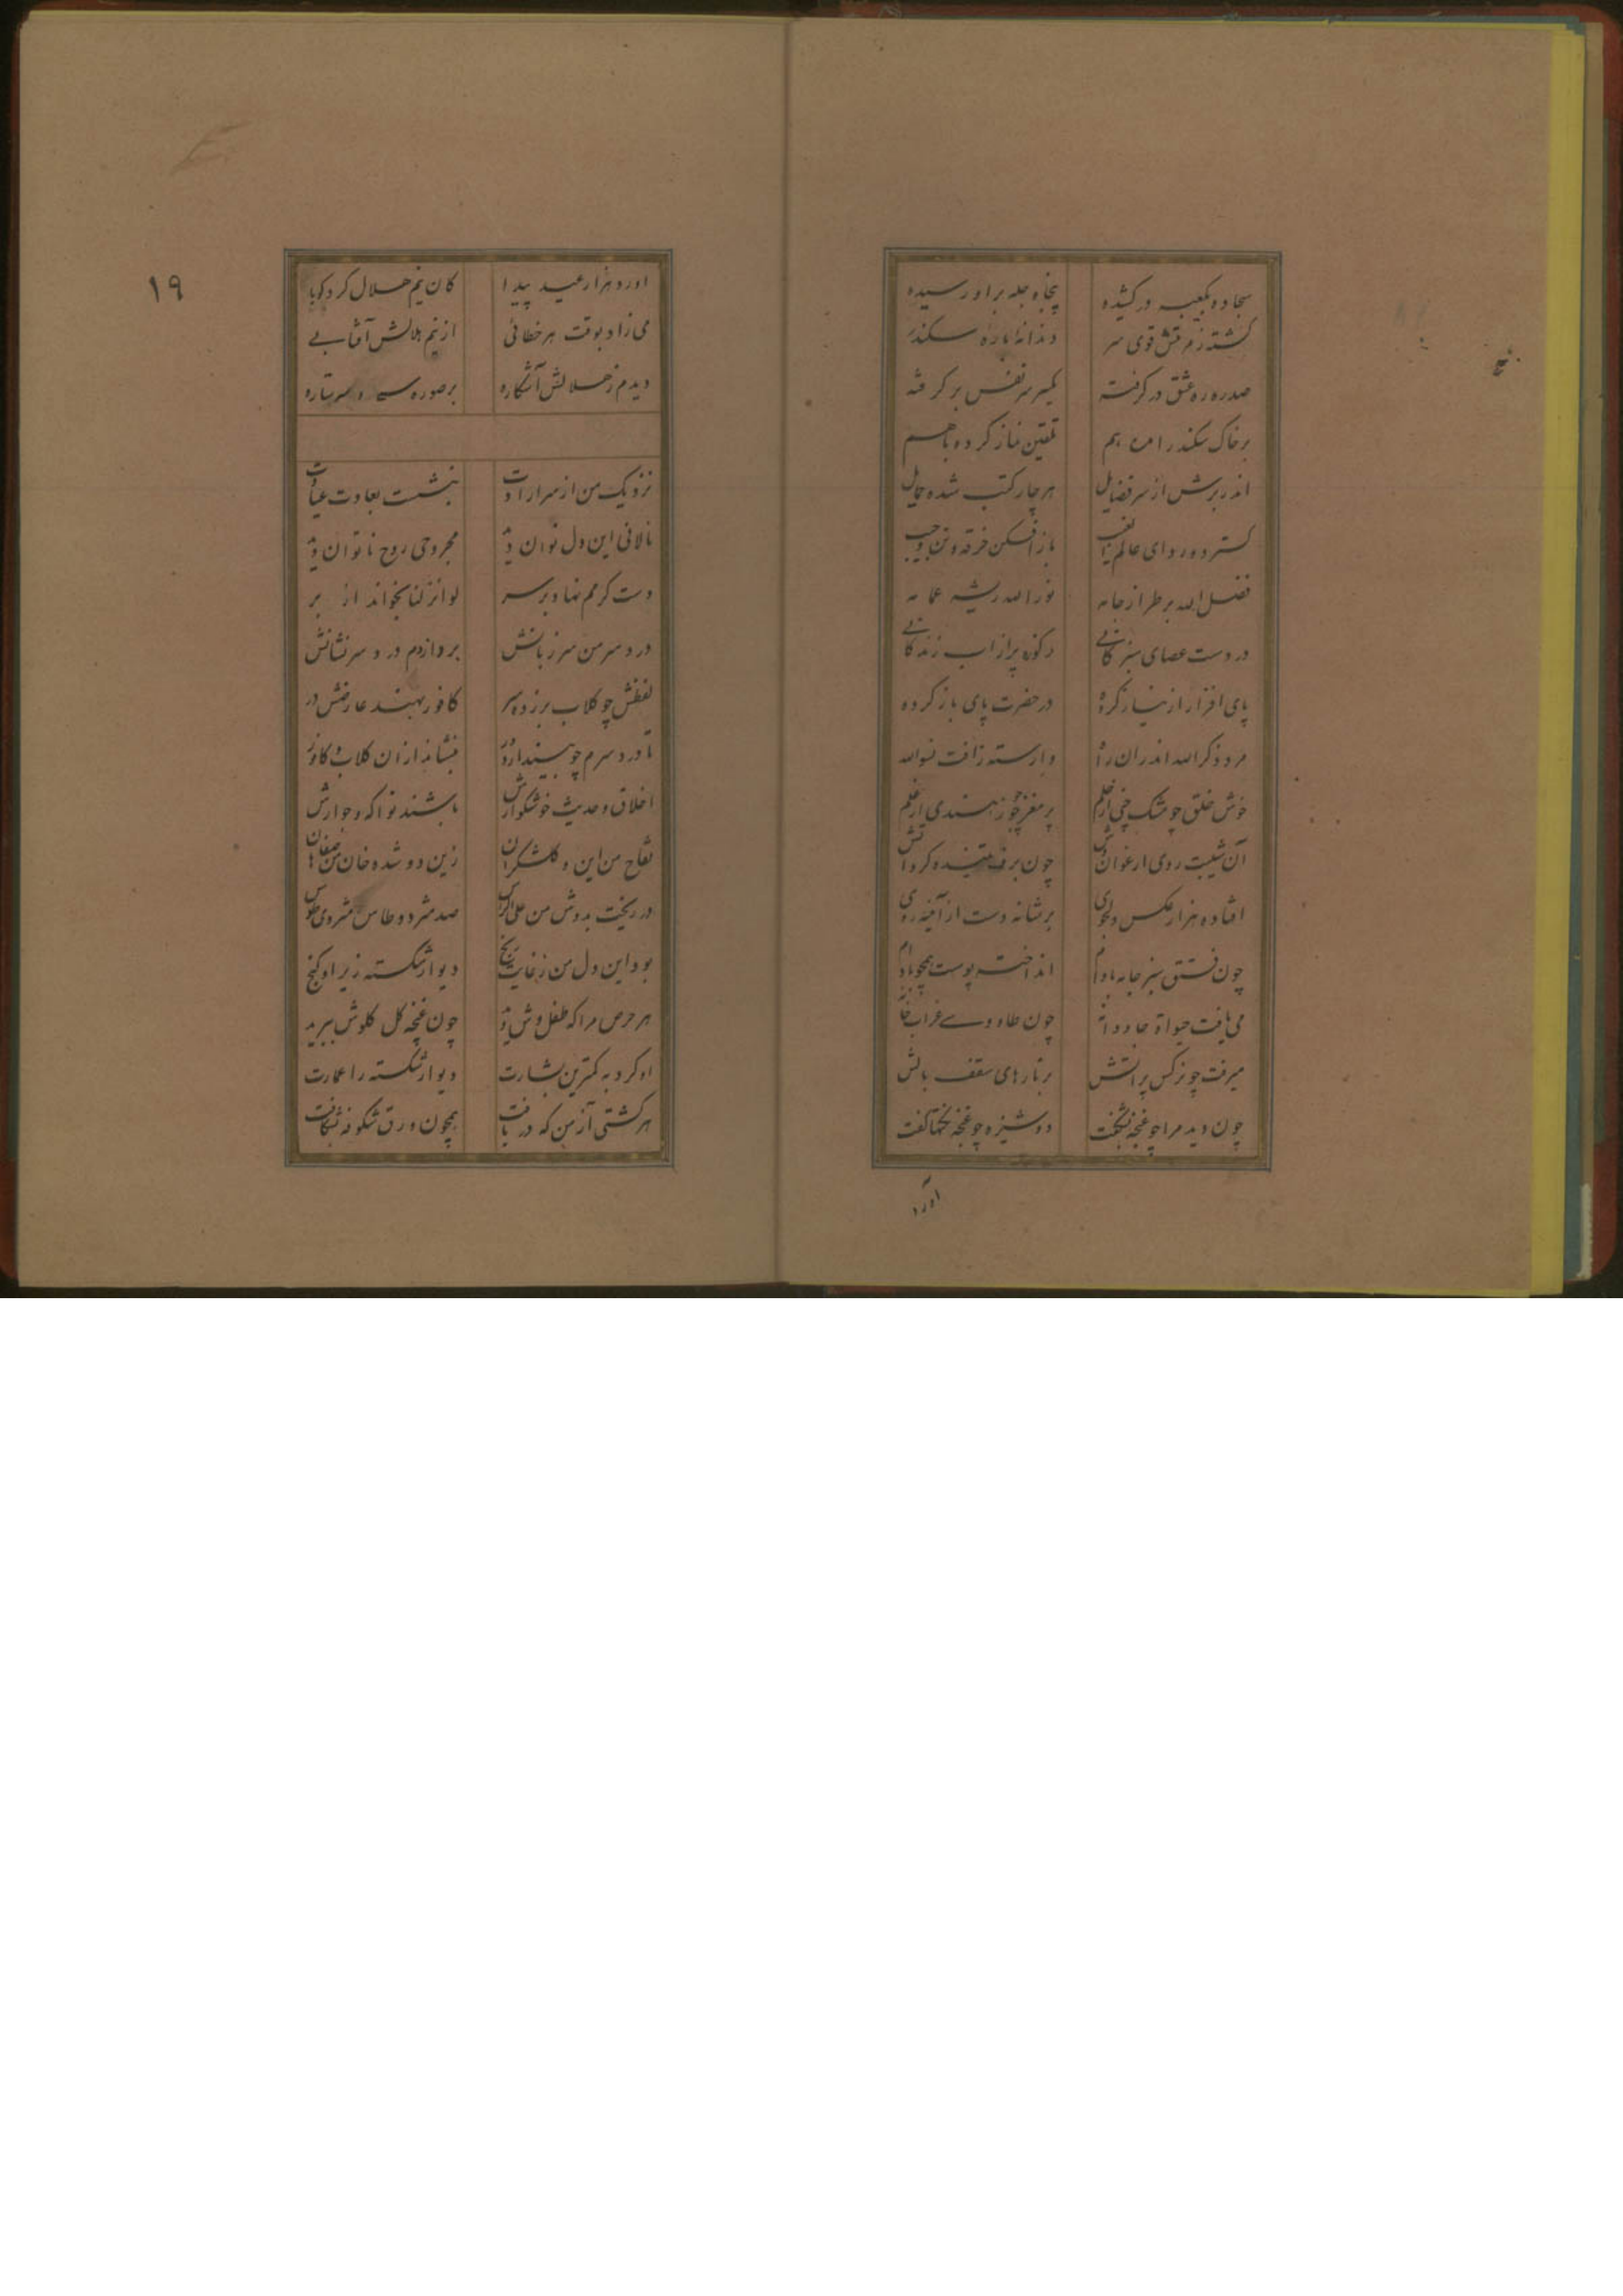 سجاده بکعبه در کشیده پنجاه چله براو رسیده
گشته زدم قوی سر دندانه سکندر
صدره ره عشق در گرفته یکسر سر نفس بر گرفته
بر خاک سکندر هم تلقین نماز کرده باهم
اندر برش از سر فضایل هر چار کتب شده حمایل
گسترده ردای عالم باز افکن خرقه
فضل الله بر طراز جامه نور الله ریشه عمامه
در دست عصای سبز رکوه پراز اب زندگانی
پای افزار از نیاز کرده در حضرت پای باز کرده
مرد ذکر الله اندران راه وارسته زافت سوالله
خوش خلق چو مشک پر مغز چو جوز هندی از علم
آن شیبت روی ارغوانی چون برف
افتاده هزار عکس دلجوی بر شانه دست از آینه روی
چون فستق سبز جامه مادام انداخته پوست همچو بادام
می یافت حیوة جاودانه چون طاووسی غراب خانه
میرفت چو نرکس پر اتش بر تارهای سقف بالش
چون دید مرا چو غنچه نکفت دوشیزه چو غنچه نکتها گفت
اورد
١٩
اورد هزار عید پیدا کان نیم هلال کرد کویا
می زاد بوقت هر خطائی از نیم هلالش آفتابی
دیدم زهلالش آشکاره بر صوره سی و سر ستاره
نزدیک من از سر ارادت بنشست بعادت عیادت
نالانی این دل نوان دید مجروحی روح ناتوان دید
دست کرمم نهاد بر سر لو انزلنا بخواند از بر
درد سر من سر زبانش بردازدم درد سر نشانش
لفظش چو کلاب برزده سر کافور بهند عارضش در
تا درد سرم چو بیند از دور بنشاند ازان کلاب و کافور
اخلاق و حدیث خوشکوارش باشند نواکه و جوارش
تفاح من این و کلشکر ان زین دو شده خان من صفاهان
در ریخت بدوش من صد مشرد و طاس مشروی طوس
بود این دل من زغایت رنج دیوار شکسته زیر او کنج
هر حرص مرا که طفل وش دید چون غنچه کل کلوش ببرید
او کرد به کمترین بشارت دیوار شکسته را عمارت
هر کشتی از من که دریافت همچون ورق شکوفه بشکافت